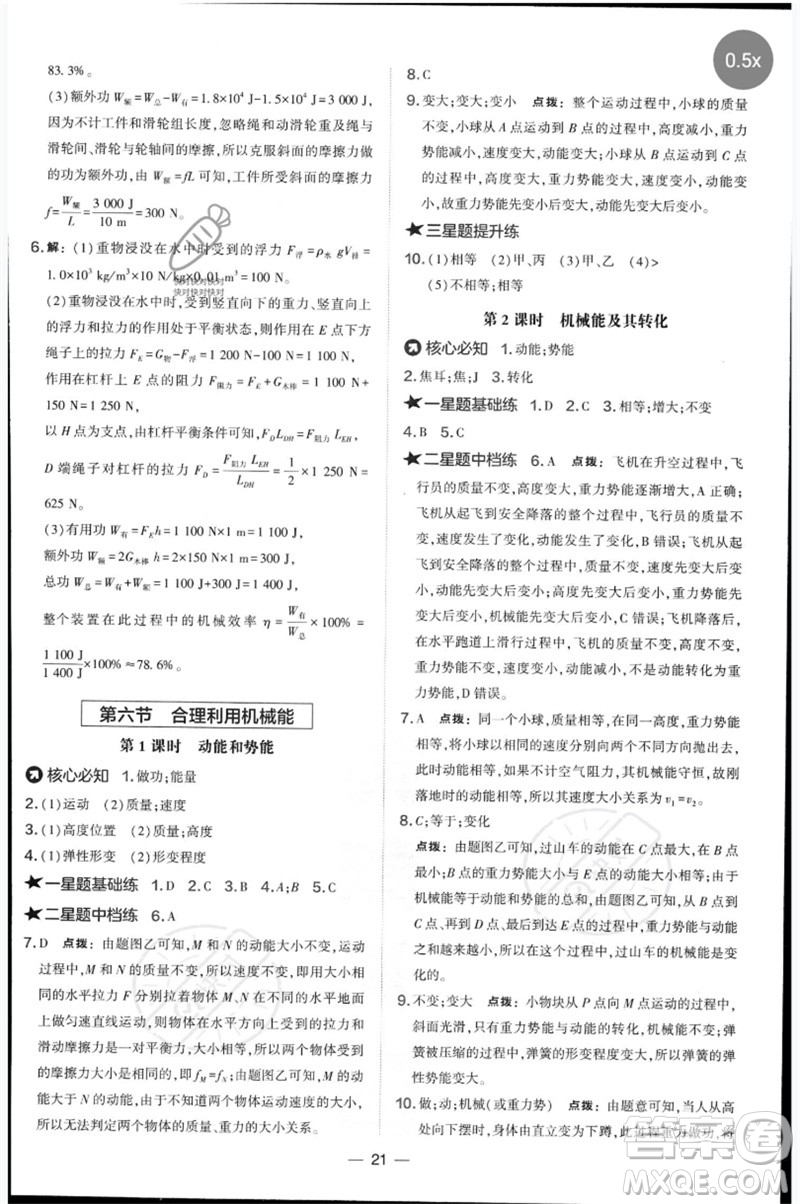 0.5x
83.3%。
(3)额外功 W额=W总−W有=1.8×10⁴ J−1.5×10⁴ J=3 000 J,
因为不计工件和滑轮组长度,忽略绳和动滑轮重、绳与
滑轮间、滑轮与轮轴间的摩擦,所以克服斜面的摩擦力做
的功为额外功。由 W额=fL 可知,工件所受斜面的摩擦力
f=W额/L=3 000 J/10 m=300 N。
6.解:(1)重物浸没在水中时受到的浮力 F浮=ρ水 gV排=
1.0×10³ kg/m³×10 N/kg×0.01 m³=100 N。
快对快对快对
快对快对快对
(2)重物浸没在水中时,受到竖直向下的重力、竖直向上
的浮力和拉力的作用处于平衡状态,则作用在 E 点下方
绳子上的拉力 FE=G物−F浮=1 200 N−100 N=1 100 N,
作用在杠杆上 E 点的阻力 F阻力=FE+G木棒=1 100 N+
150 N=1 250 N。
以 H 点为支点,由杠杆平衡条件可知,FDLDH=F阻力LEH,
D 端绳子对杠杆的拉力 FD=F阻力LEH/LDH=1/2×1 250 N=
625 N。
(3)有用功 W有=FEh=1 100 N×1 m=1 100 J,
额外功 W额=2G木棒 h=2×150 N×1 m=300 J,
总功 W总=W有+W额=1 100 J+300 J=1 400 J,
整个装置在此过程中的机械效率 η=W有/W总×100%=
1 100 J/1 400 J×100%≈78.6%。
第六节 合理利用机械能
第 1 课时 动能和势能
核心必知 1.做功;能量
2.(1)运动 (2)质量;速度
3.(1)高度位置 (2)质量;高度
4.(1)弹性形变 (2)形变程度
一星题基础练 1.D 2.C 3.A 4.B 5.C
二星题中档练 6.A
7.D 点拨:由题图乙可知,M 和 N 的动能大小不变,运动
过程中,M 和 N 的质量不变,速度大小不变,即用大小不
同的水平拉力 F 分别拉着物体 M、N 在不同的水平地面
上做匀速直线运动,则物体在水平方向上受到的拉力和
滑动摩擦力是一对平衡力,大小相等,故 fM=FM=
动能大于 N 的动能,由于不知道两个物体运动速度的大小,
所以无法判断两个物体的质量、重力的大小关系。
8.C
9.变大;变大;变小 点拨:整个运动过程中,小球的质量
不变,小球从 A 点运动到 B 点的过程中,高度减小,重力
势能减小,速度变大,动能变大;小球从 B 点运动到 C 点
的过程中,高度增大,重力势能变大,速度减小,动能变
小。故重力势能先变小后变大,动能先变大后变小。
三星题提升练
10.(1)相等 (2)甲、丙 (3)甲、乙 (4)>
(5)不相等;相等
第 2 课时 机械能及其转化
核心必知 1.动能;势能
2.焦耳;焦;J 3.转化
一星题基础练 1.D 2.C 3.相等;增大;不变
4.B 5.C
二星题中档练 6.A 点拨:飞机在升空过程中,飞
行员的质量不变,高度变大,重力势能逐渐增大,A 正确;
飞机从起飞到安全降落的整个过程中,飞行员的质量不
变,速度发生了变化,动能发生了变化,B 错误;飞机从起
飞到安全降落的整个过程中,质量不变,速度先变大后变
小,动能先变大后变小;高度先变大后变小,重力势能先
变大后变小,机械能先变大后变小,C 错误;飞机降落后
在水平跑道上滑行过程中,飞机的质量不变,高度不变,
重力势能不变,速度变小,动能减小,不是动能转化为重
力势能,D 错误。
7.A 点拨:同一个小球,质量相等,在同一高度,重力势能
相等,将小球以相同的速度分别向不同方向抛出去,此时
动能相等,因此机械能相等,不计空气阻力,其机械能守恒,故刚
落地时的动能相等,其速度大小关系为 v₁=v₂。
8.C;等于;变化
点拨:由题图乙可知,过山车的动能和重力势能可以相互转化,
机械能等于动能和重力势能的总和,由题图乙可知,
动能和重力势能大小相等,重力势能与动能
之和不是定值,所以此过程中,过山车的机械能是变
化的。
9.不变;变大 点拨:小物块从 P 点运动到 M 点过程中,
斜面光滑,只有重力势能与动能的转化,机械能不变;弹
簧被压缩的过程中,弹簧的形变程度变大,弹簧的弹性
势能变大。
10.做;动;机械(或重力势) 点拨:由题意可知,当人从高
处向下摆时,身体由直立变为下蹲,此过程重力做功,将
21
答案圈
MXQE.COM